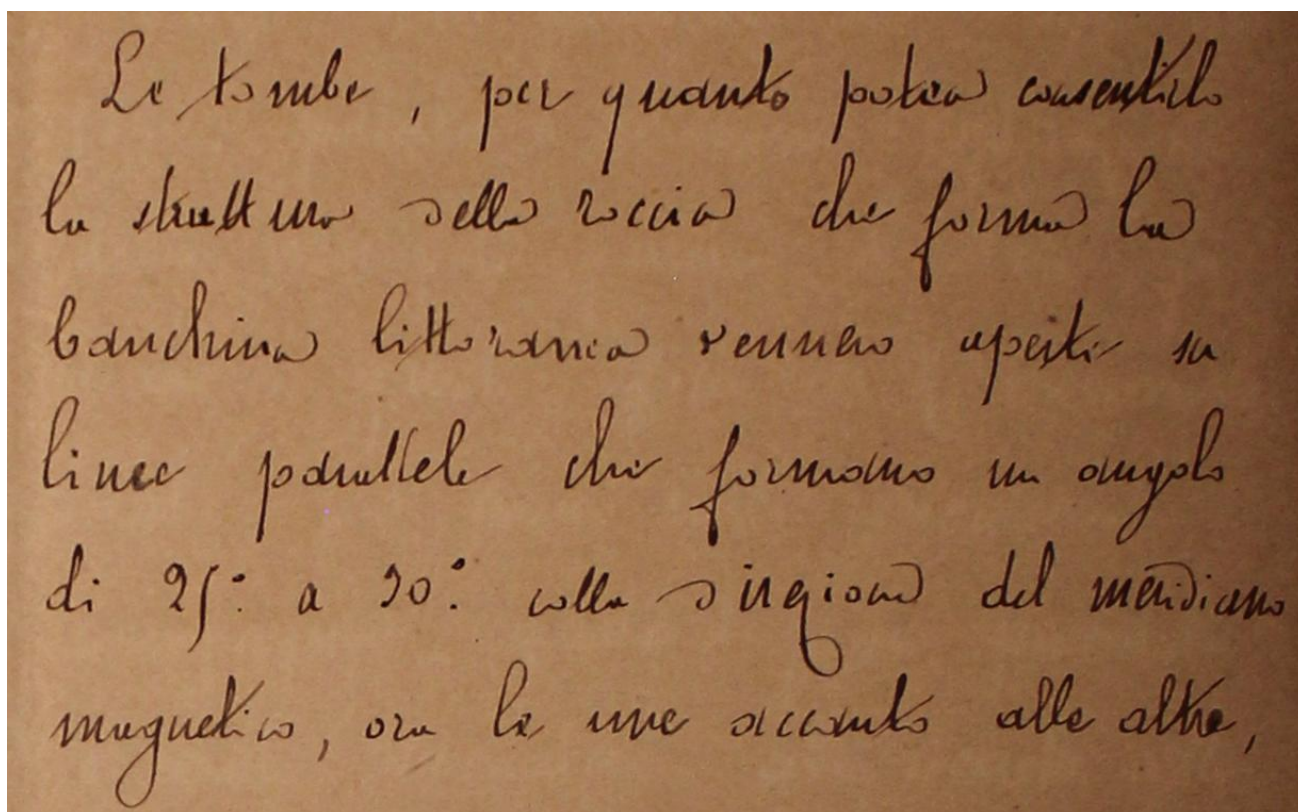 Le tombe, per quanto potea consentirlo
la struttura della roccia che forma la
banchina littoranea vennero aperte su
linee parallele che formano un angolo
di 25.° a 30.° colla direzione del meridiano
magnetico, ora le une accanto alle altre,